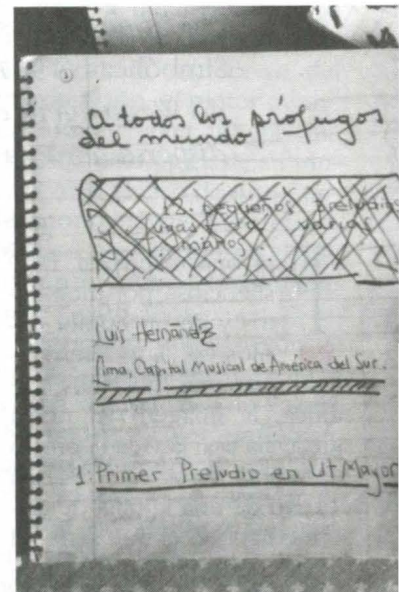 a todos los prófugos
del mundo
12 pequeños preludios
y fugas a varias
manos.
Luis Hernández
Lima, Capital Musical de América del Sur.
1 Primer Preludio en Ut Mayor